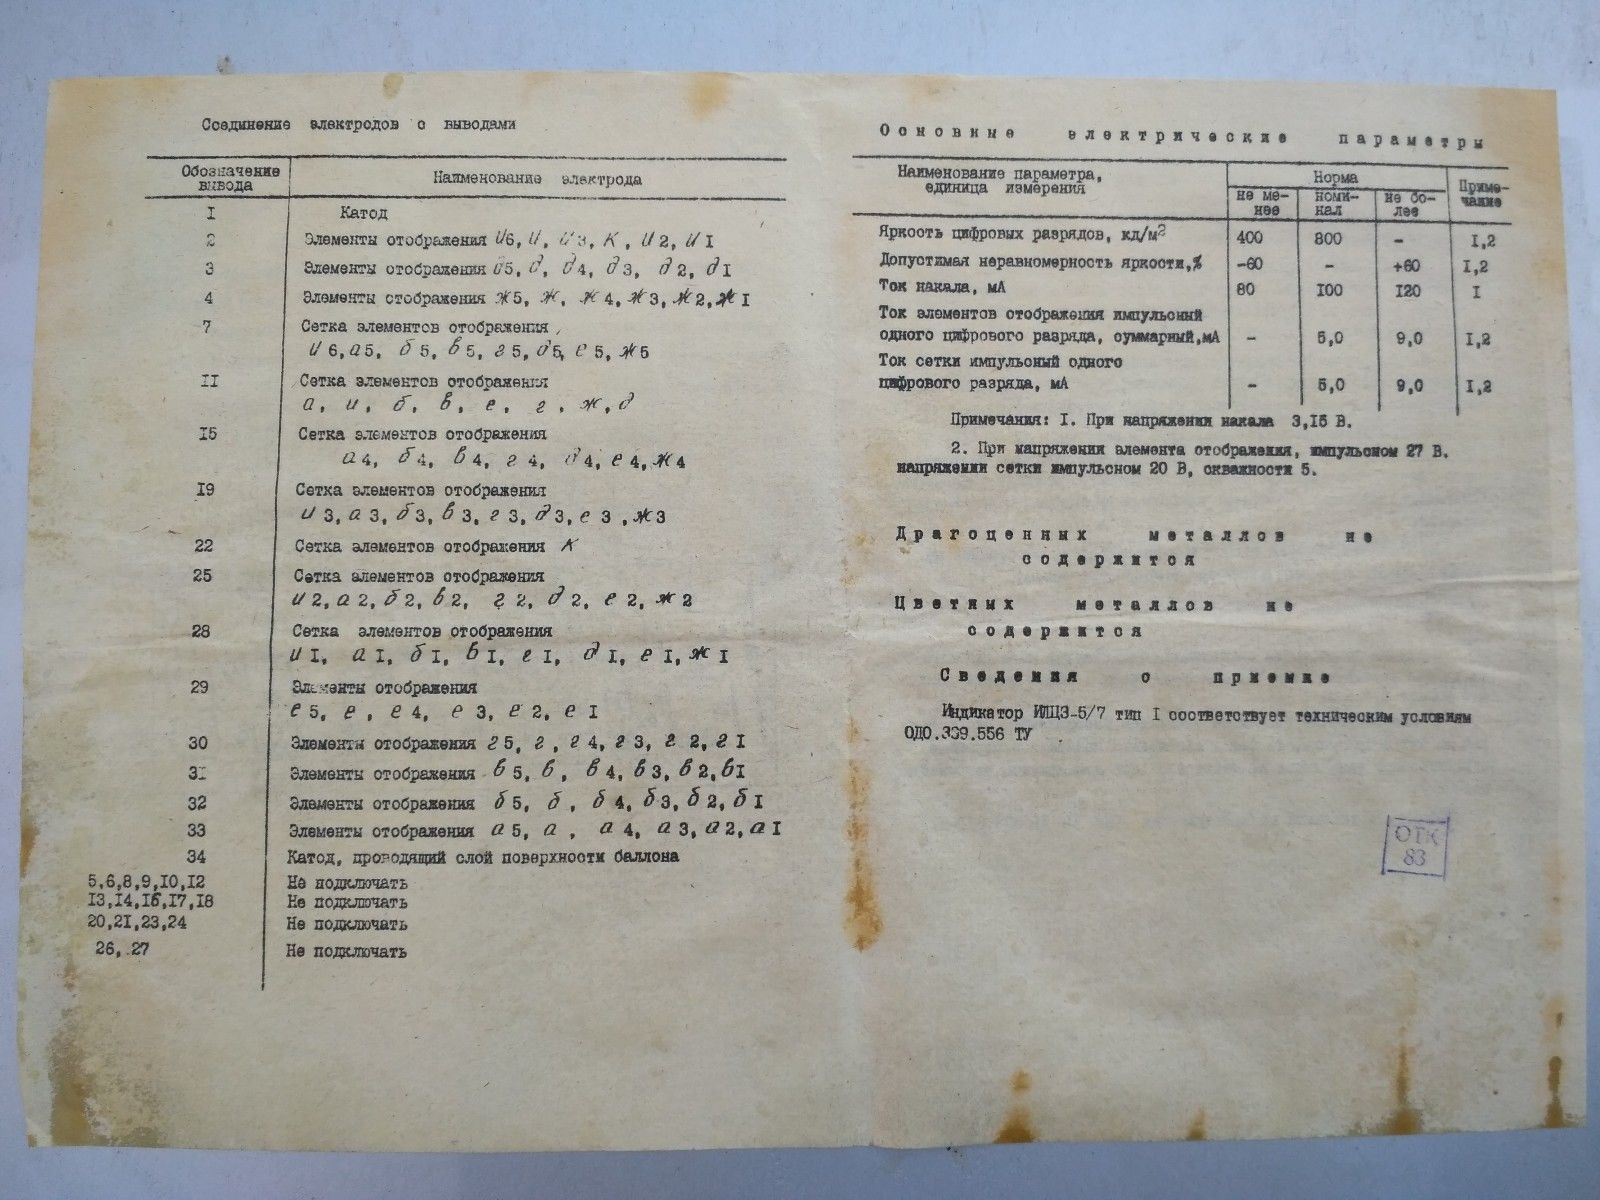 Соединение электродов с выводами
Обозначение вывода
Наименование электрода
I Катод
2 Элементы отображения и6, и, и3, к, и2, иI
3 Элементы отображения д5, д, д4, д3, д2, дI
4 Элементы отображения ж5, ж, ж4, ж3, ж2, жI
7 Сетка элементов отображения
и6, а5, б5, в5, г5, д5, е5, ж5
II Сетка элементов отображения
а, и, б, в, е, г, ж, д
I5 Сетка элементов отображения
а4, б4, в4, г4, д4, е4, ж4
I9 Сетка элементов отображения
и3, а3, б3, в3, г3, д3, е3, ж3
22 Сетка элементов отображения к
25 Сетка элементов отображения
и2, а2, б2, в2, г2, д2, е2, ж2
28 Сетка элементов отображения
иI, аI, бI, вI, еI, дI, еI, жI
29 Элементы отображения
е5, е, е4, е3, е2, еI
30 Элементы отображения г5, г, г4, г3, г2, гI
3I Элементы отображения в5, в, в4, в3, в2, вI
32 Элементы отображения б5, б, б4, б3, б2, бI
33 Элементы отображения а5, а, а4, а3, а2, аI
34 Катод, проводящий слой поверхности баллона
5,6,8,9,I0,I2 Не подключать
I3,I4,I6,I7,I8 Не подключать
20,2I,23,24 Не подключать
26, 27 Не подключать
Основные электрические параметры
Наименование параметра,
единица измерения
Норма
не ме-
нее
номи-
нал
не бо-
лее
Приме-
чание
Яркость цифровых разрядов, кд/м2 400 800 - I,2
Допустимая неравномерность яркости,% -60 - +60 I,2
Ток накала, мА 80 I00 I20 I
Ток элементов отображения импульсный
одного цифрового разряда, суммарный,мА - 5,0 9,0 I,2
Ток сетки импульсный одного
цифрового разряда, мА - 5,0 9,0 I,2
Примечания: I. При напряжении накала 3,I5 В.
2. При напряжении элемента отображения, импульсном 27 В.
напряжении сетки импульсном 20 В, скважности 5.
Драгоценных металлов не
содержится
Цветных металлов не
содержится
Сведения о приемке
Индикатор ИЛЦ3-5/7 тип I соответствует техническим условиям
ОДО.339.556 ТУ
ОТК
83